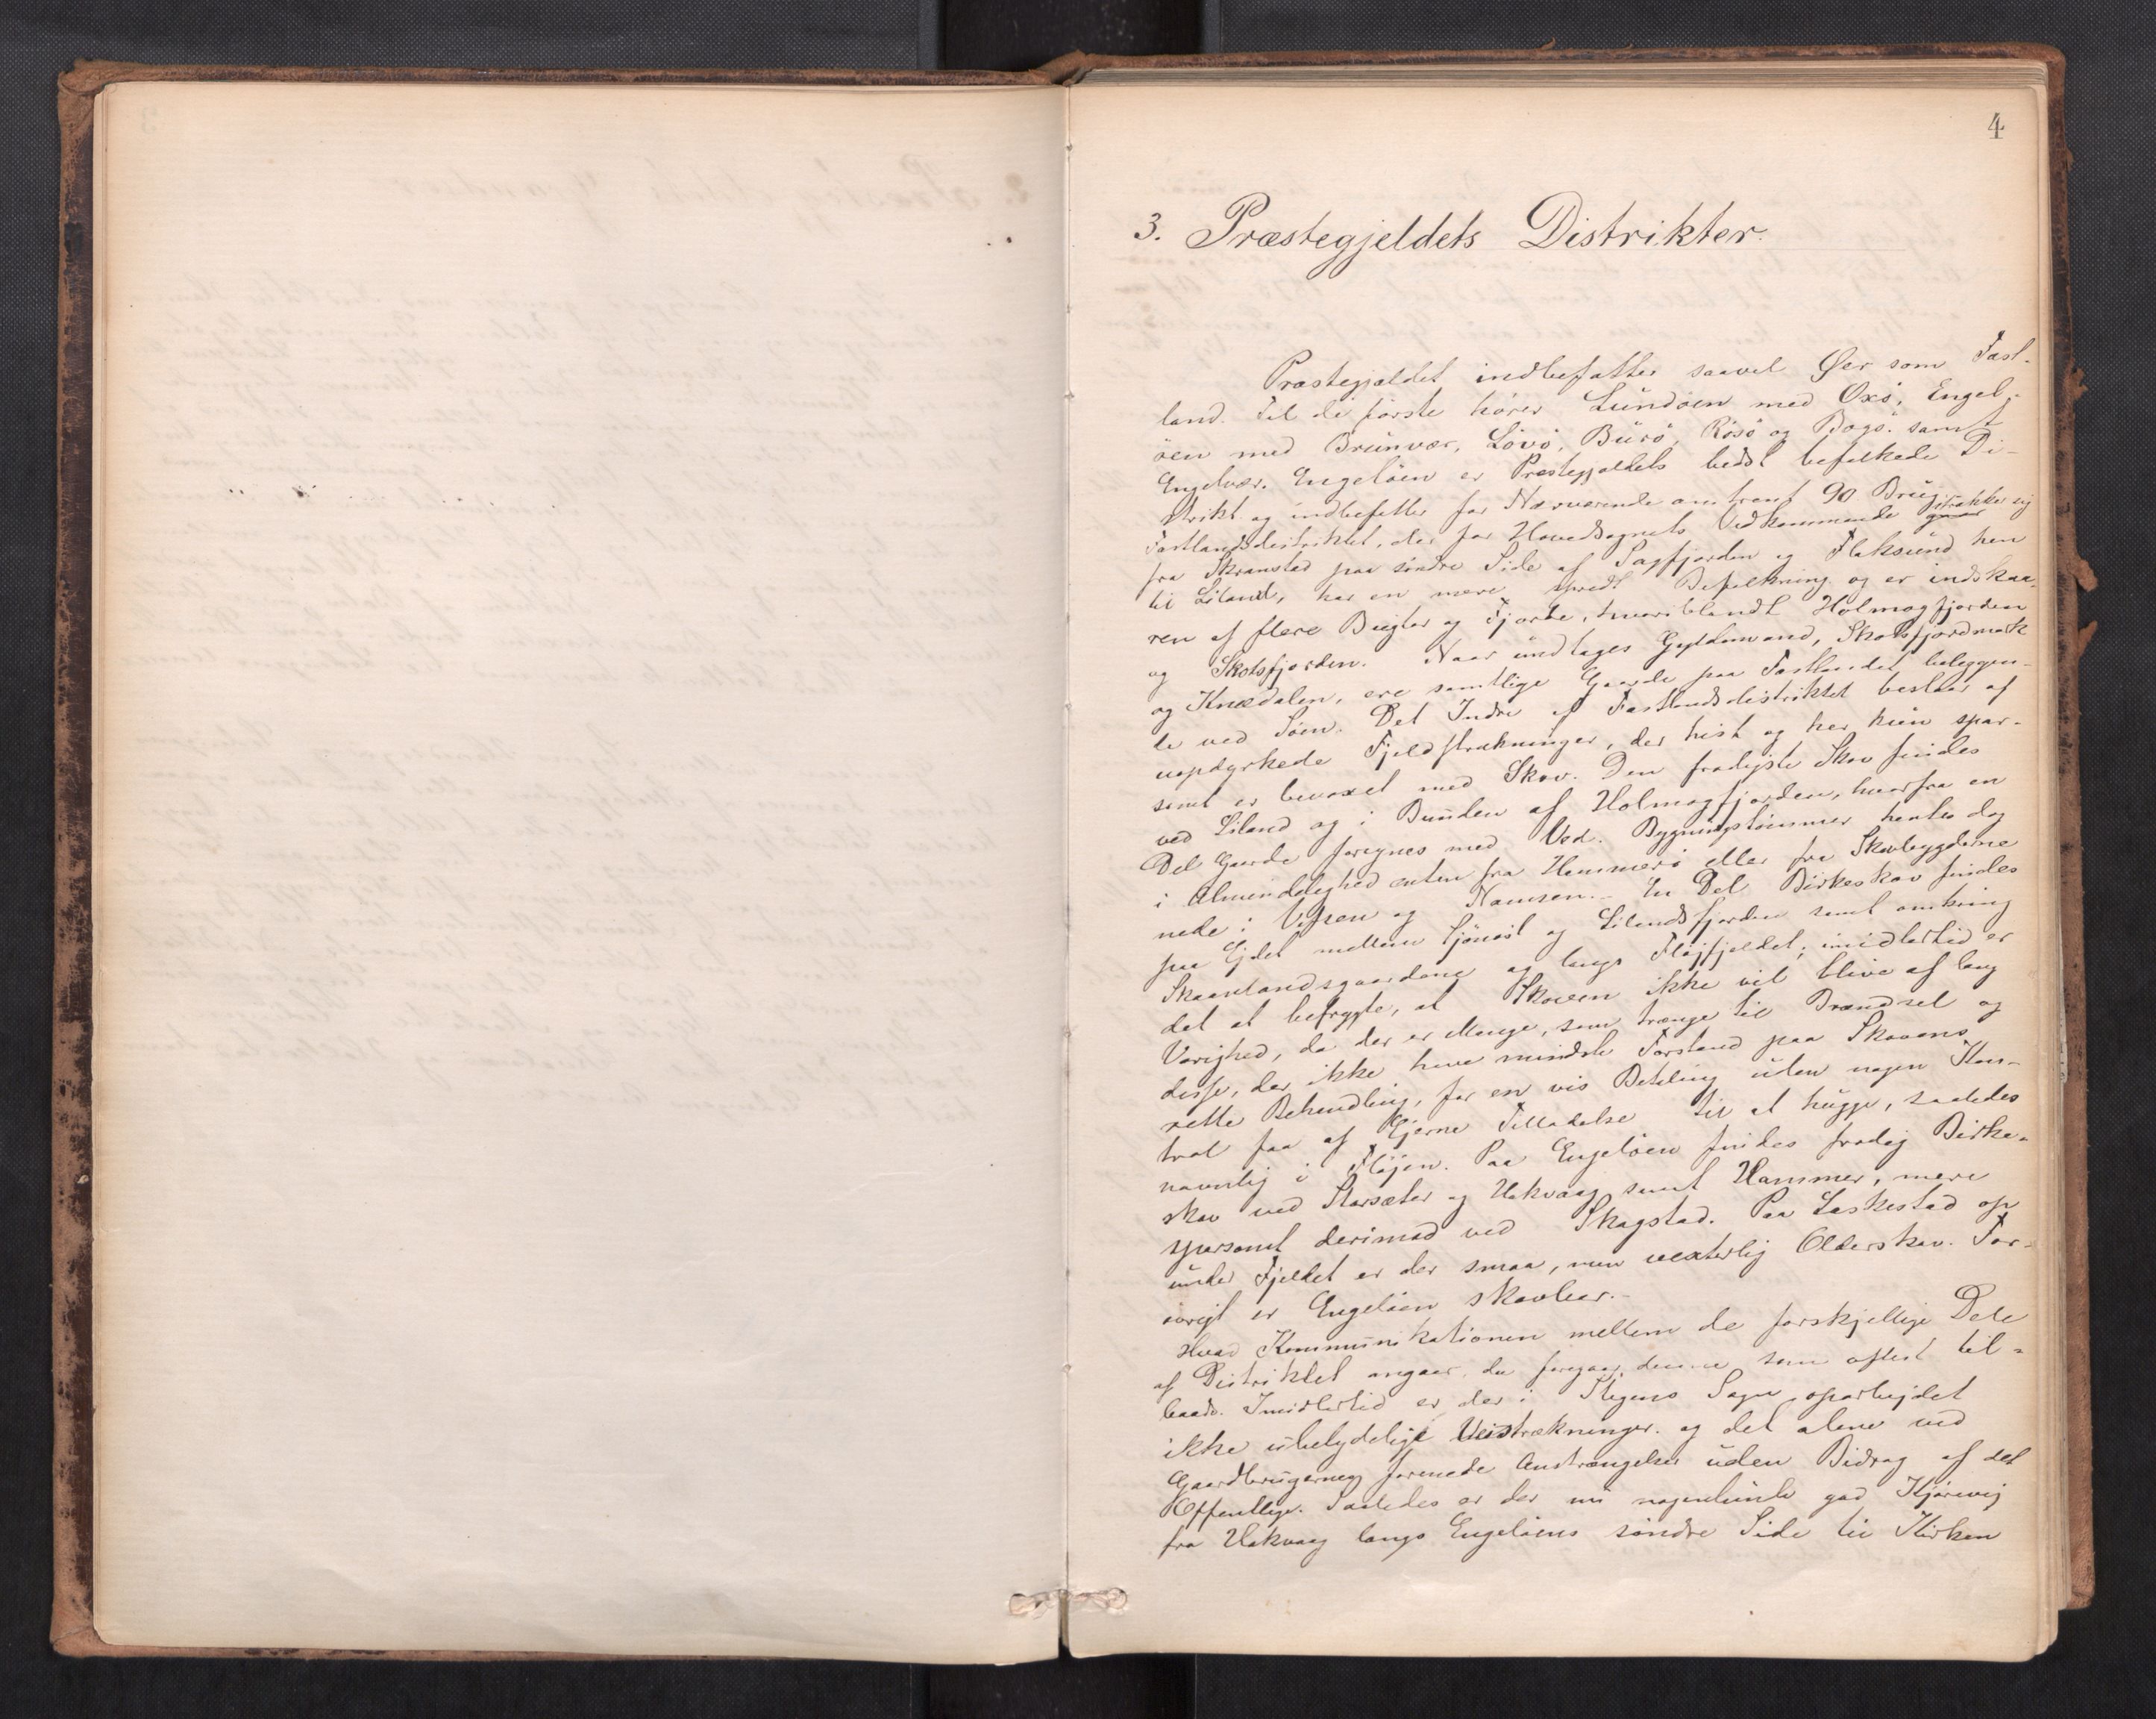 4
3. Præstegjeldets Distrikter.
Præstegjældet indbefatter saavel Øer som Fast-
land. Til de første hører Lundøen med Oxø, Engel-
øen med Brunvær, Løvø, Burø, Røsø og Bogø samt
Engelvær. Engeløen er Præstegjældets bedst befolkede Di-
strikt og indbefatter for Nærværende omtrent 90 Brug.
Fastlandsdistriktet, der for Hovedsognets Vedkommende strækker sig
fra Skranstad paa søndre Side af Sagfjorden og Flaksund hen
til Liland, har en mere spredt Befolkning og er indskaa-
ren af flere Bugter og Fjorde, hvoriblandt Holmogfjorden
og Skotsfjorden. Naar undtages Gyldenvand, Skotsfjordmark
og Knædalen, ere samtlige Gaarde paa Fastlandet beliggen-
de ved Søen. Det Indre af Fastlandsdistriktet bestaar af
uopdyrkede Fjeldstrækninger, der hist og her kun spar-
somt er bevoxet med Skov. Den frodigste Skov findes
ved Liland og i Bunden af Holmogfjorden, hvorfra en
Del Gaarde forsynes med Ved. Bygningstømmer hentes dog
i Almindelighed enten fra Hammerø eller fra Skovbygderne
nede i Vefsen og Namsen. En Del Birkeskov findes
paa Ejdet mellem og Lilandsfjorden samt omkring
Skaanlandsgaardene og langs Fløjfjeldet; imidlertid er
det at befrygte, at Skoven ikke vil blive af lang
Varighed, da der er Mange, som trænge til Brændsel og
disse, der ikke have mindste Forstand paa Skovens
rette Behandling, for en vis Betaling uden nogen Kon-
trol faa af Ejerne Tilladelse til at hugge, saaledes
navnlig i Fløjen. Paa Engeløen findes frodig Birke-
skov ved Storsæter og Hakvaag samt Hammer, mere
sparsomt derimod ved Skagstad. Paa Laskestad op
under Fjeldet er der smaa, men vexterlig Olderskov. For-
øvrigt er Engeløen skovbar.
Hvad Kommunikationen mellem de forskjellige Dele
af Distriktet angaar, da foregaar denne som oftest til-
baads. Imidlertid er der i Stegens Sogn oparbejdet
ikke ubetydelige Veistrækninger og det alene ved
Gaardbrugernes forenede Anstrængelser uden Bidrag af det
Offentlige. Saaledes er der nu nogenlunde god Kjørevej
fra Hakvaag langs Engeløens søndre Side til Kirken